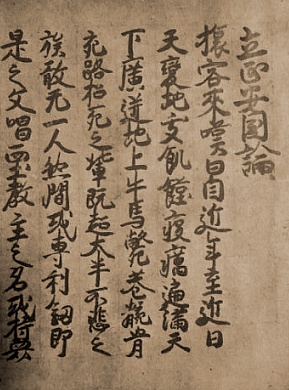 立正安国論
旅客來嘆曰自近年至近日
天變地夭飢饉疫癘遍滿天
下廣迸地上牛馬斃巷骸骨
充路招死之輩既超大半不悲之
族敢无一人然間或專利釼即
是之文唱西土教主之名或持衆